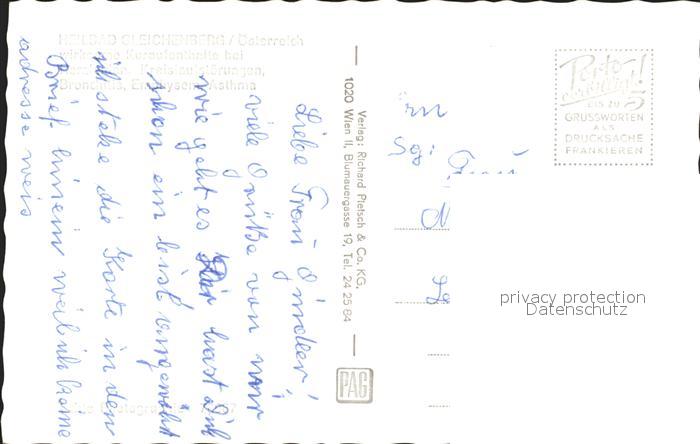 HEILBAD GLEICHENBERG / Österreich
wirksame Kuraufenthalte bei
Kreislaufstörungen,
Bronchitis, Emphysem, Asthma
Liebe Frau
viele Grüße von mir
wie geht es Dir hast Dich
schon ein bissl eingewöhnt
ich stecke die Karte in den
Brief hinein weil ich keine
adresse weis
Verlag: Richard Pietsch & Co. KG,
1020 Wien II, Blumauergasse 19, Tel. 24 25 84
PAG
Porto
ermäßigt!
BIS ZU 5
GRUSSWORTEN
ALS
DRUCKSACHE
FRANKIEREN
privacy protection
Datenschutz